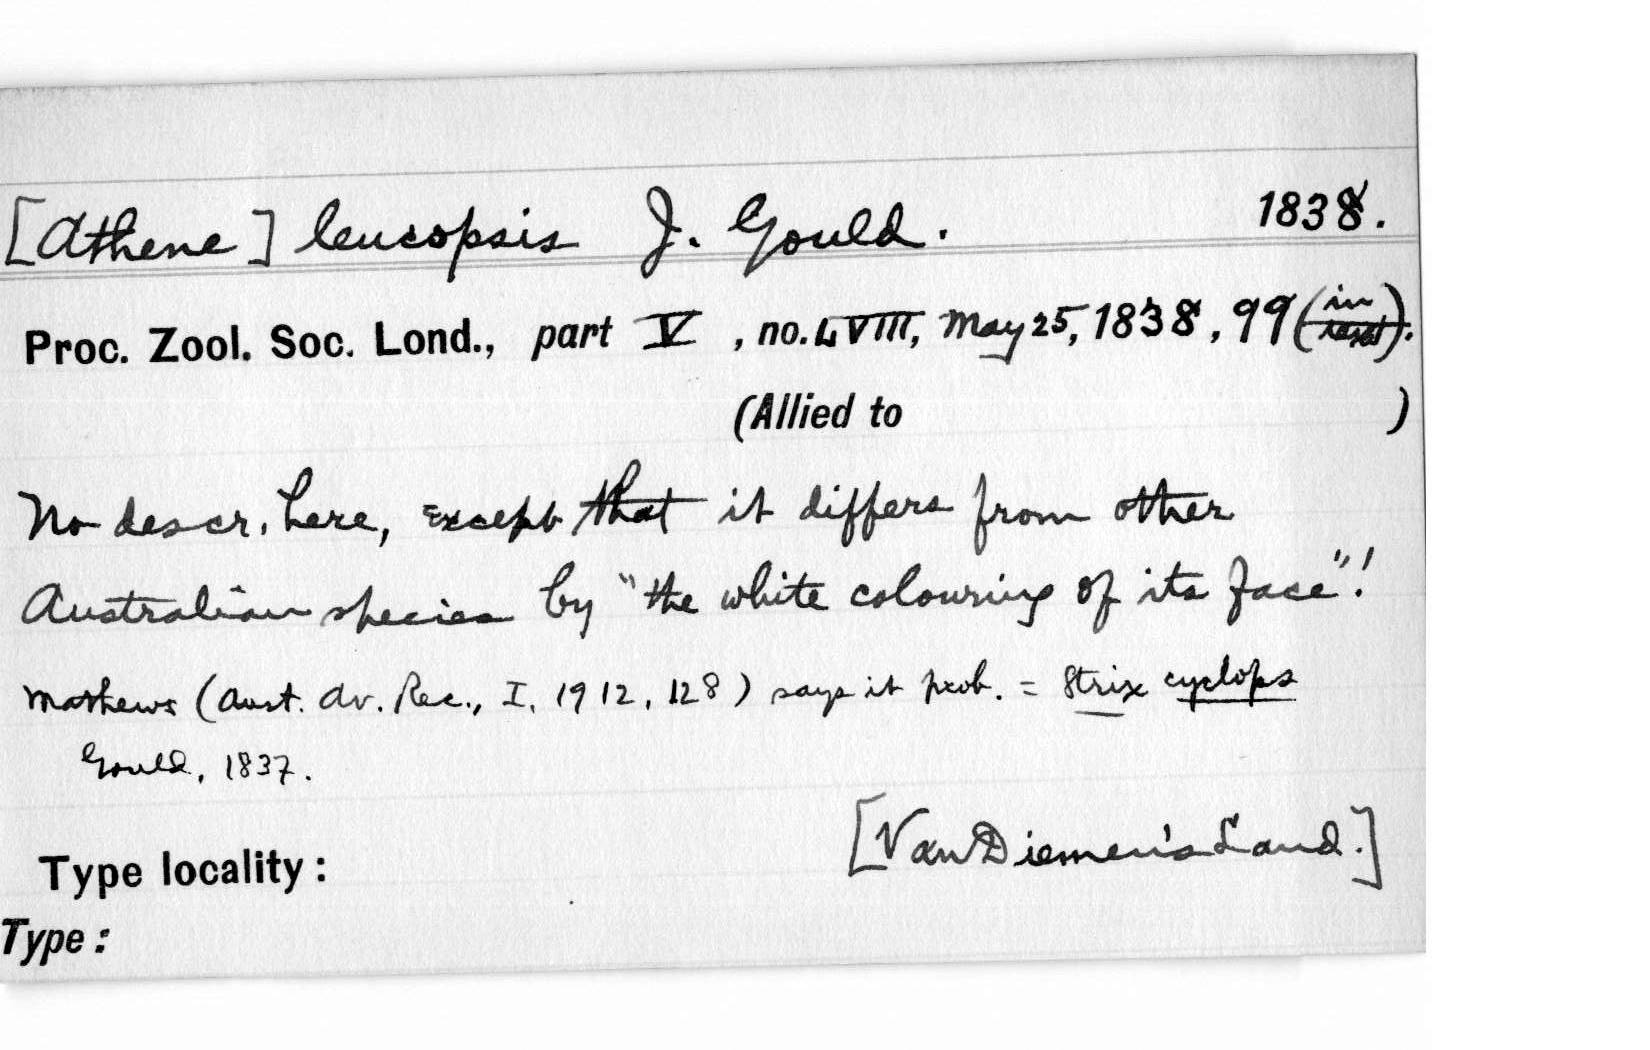 [Athene] leucopsis J. Gould. 1838.
Proc. Zool. Soc. Lond., part V, no. LVIII, May 25, 1838, 99 (in text).
(Allied to )
No descr. here, except that it differs from other
Australian species by "the white colouring of its face"!
Mathews (Aust. Av. Rec., I, 1912, 128) says it prob. = Strix cyclops
Gould, 1837.
[Van Diemen's Land.]
Type locality:
Type: